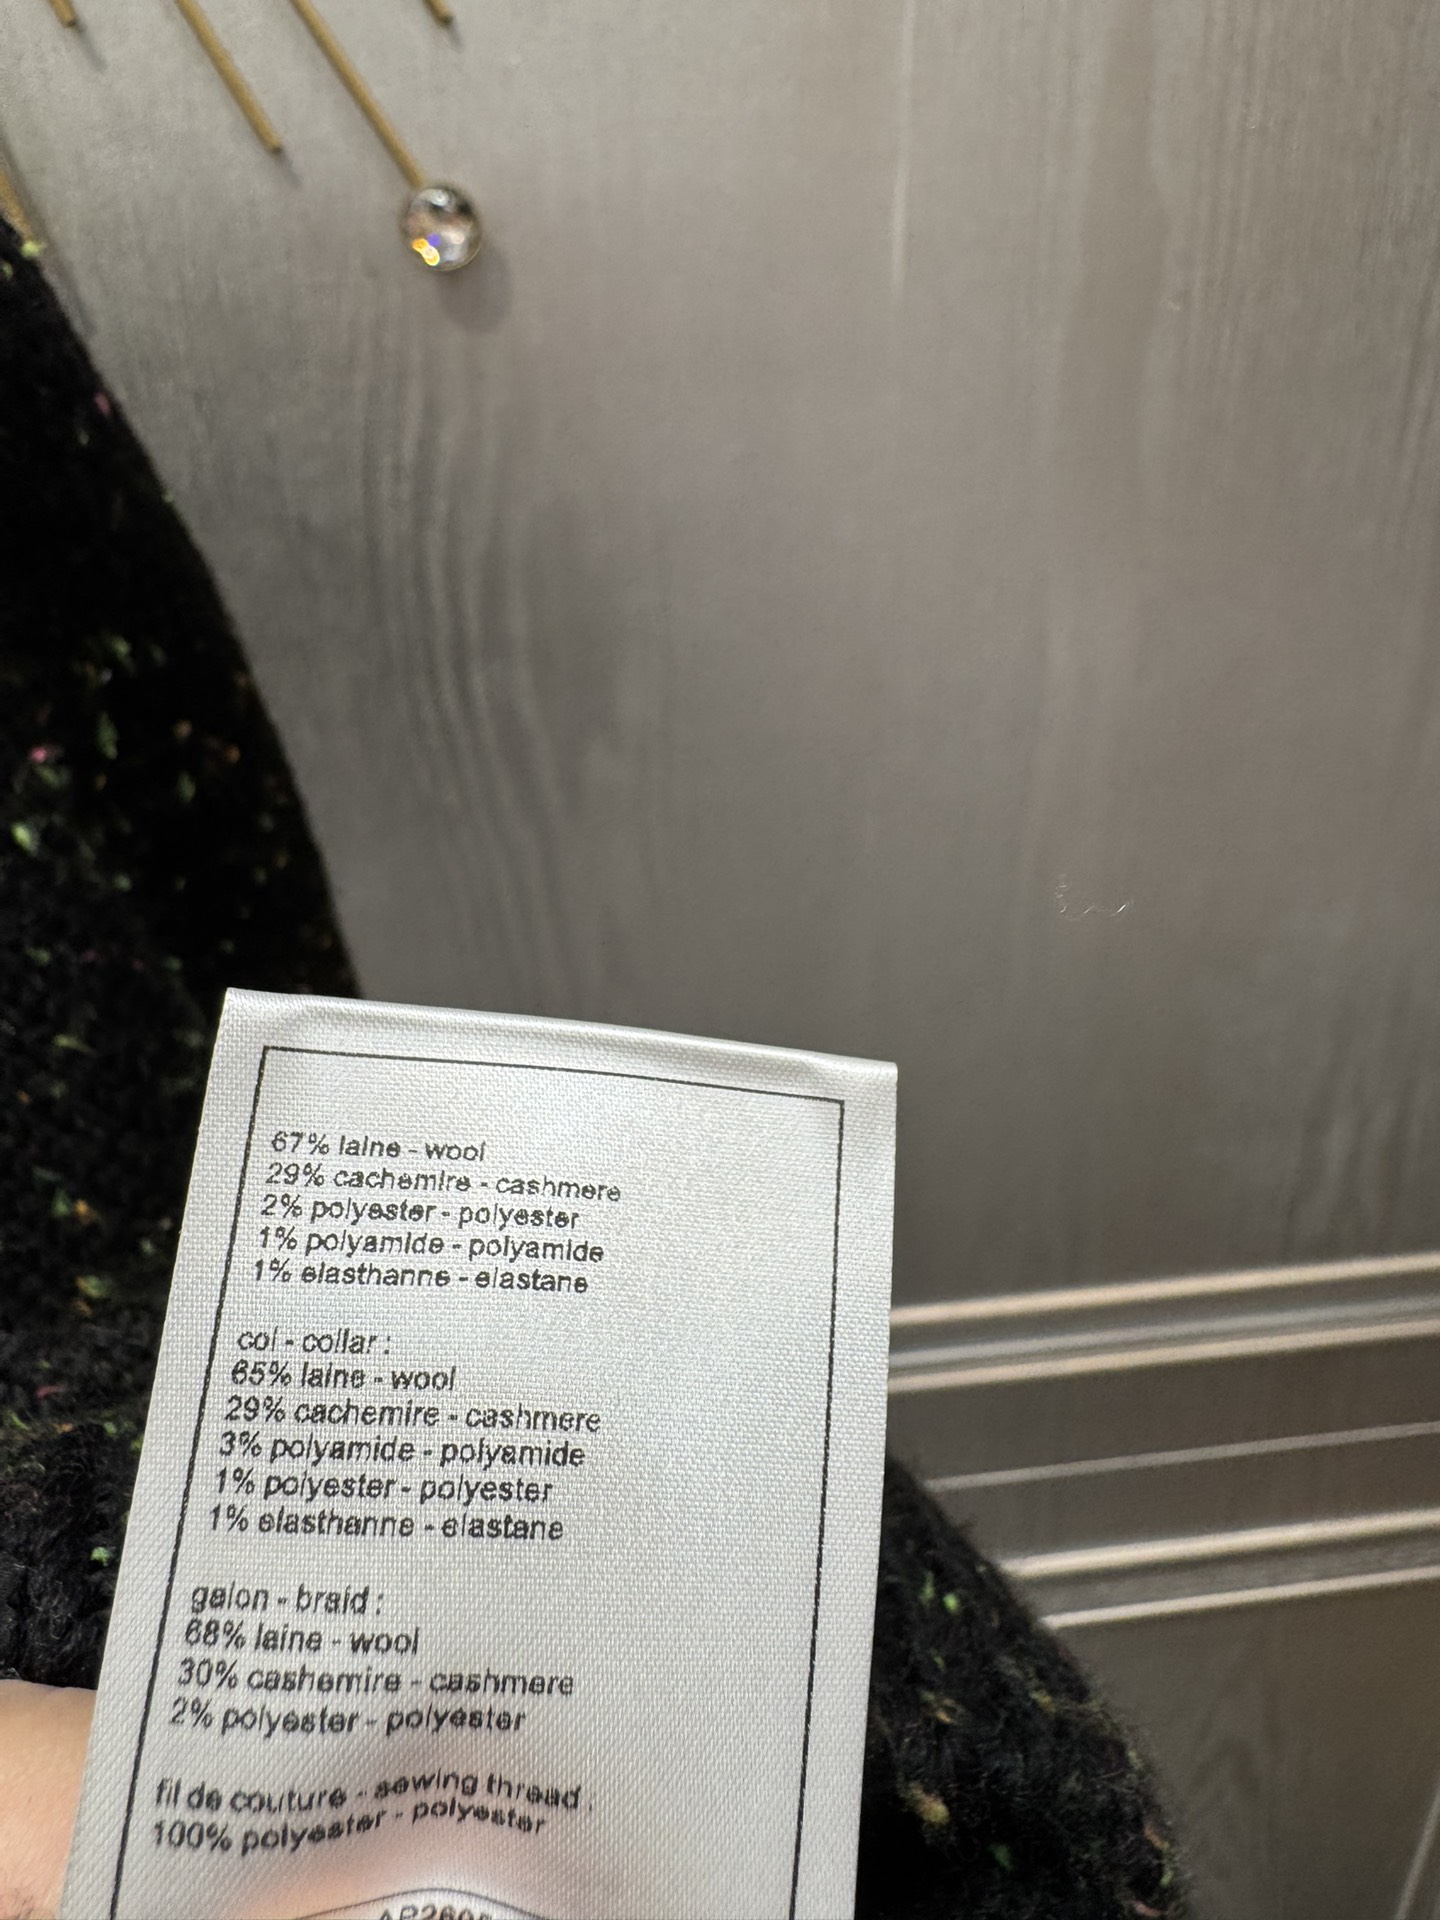 67% laine - wool
29% cachemire - cashmere
2% polyester - polyester
1% polyamide - polyamide
1% élasthanne - elastane
col - collar :
65% laine - wool
29% cachemire - cashmere
3% polyamide - polyamide
1% polyester - polyester
1% élasthanne - elastane
galon - braid :
68% laine - wool
30% cashemire - cashmere
2% polyester - polyester
fil de couture - sewing thread :
100% polyester - polyester